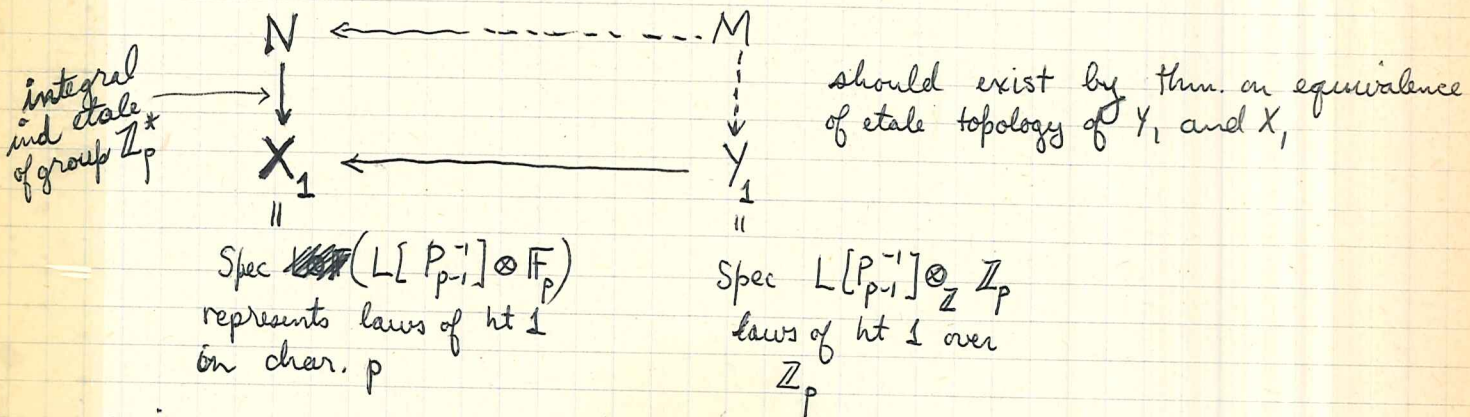 N M
integral
ind etale
of group Z_p^*
should exist by thm. on equivalence
of etale topology of Y_1 and X_1
X_1 Y_1
= =
Spec (L[P_{p-1}^{-1}] ⊗ F_p)
represents laws of ht 1
in char. p
Spec L[P_{p-1}^{-1}] ⊗_Z Z_p
laws of ht 1 over
Z_p